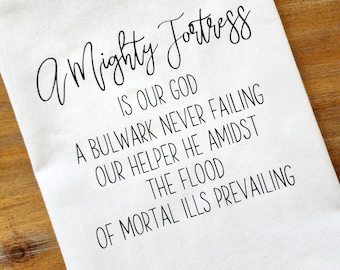 A Mighty Fortress
IS OUR GOD
A BULWARK NEVER FAILING
OUR HELPER HE AMIDST
THE FLOOD
OF MORTAL ILLS PREVAILING